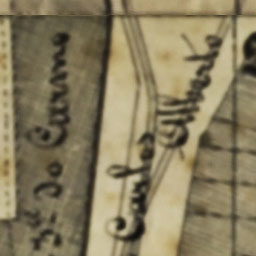 do Carmo
Carlos Alberto